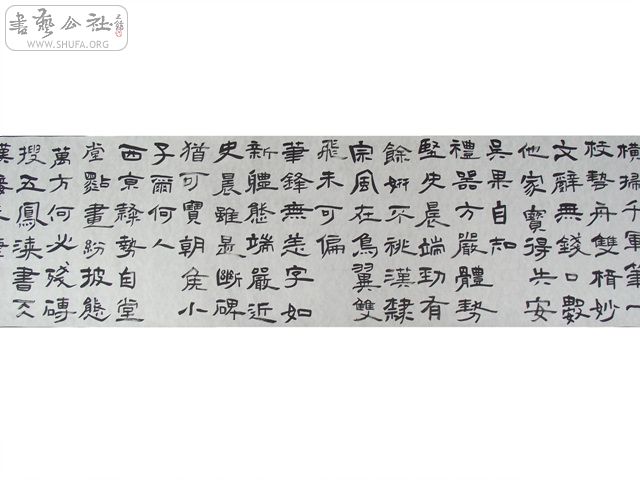 書藝公社
WWW.SHUFA.ORG
橫掃千軍筆一
枝勢舟雙楫妙
文辭無錢口數
他家寶得失安
吳果自知
禮器方嚴體勢
堅史晨端勁有
餘妍不祧漢隸
宗風在鳥翼雙
飛未可偏
筆鋒無恙字如
新體態端嚴近
史晨雖是斷碑
猶可寶朝侯小
子爾何人
西京隸勢自堂
堂點畫紛披態
萬方何必殘磚
搜五鳳漢書
漢